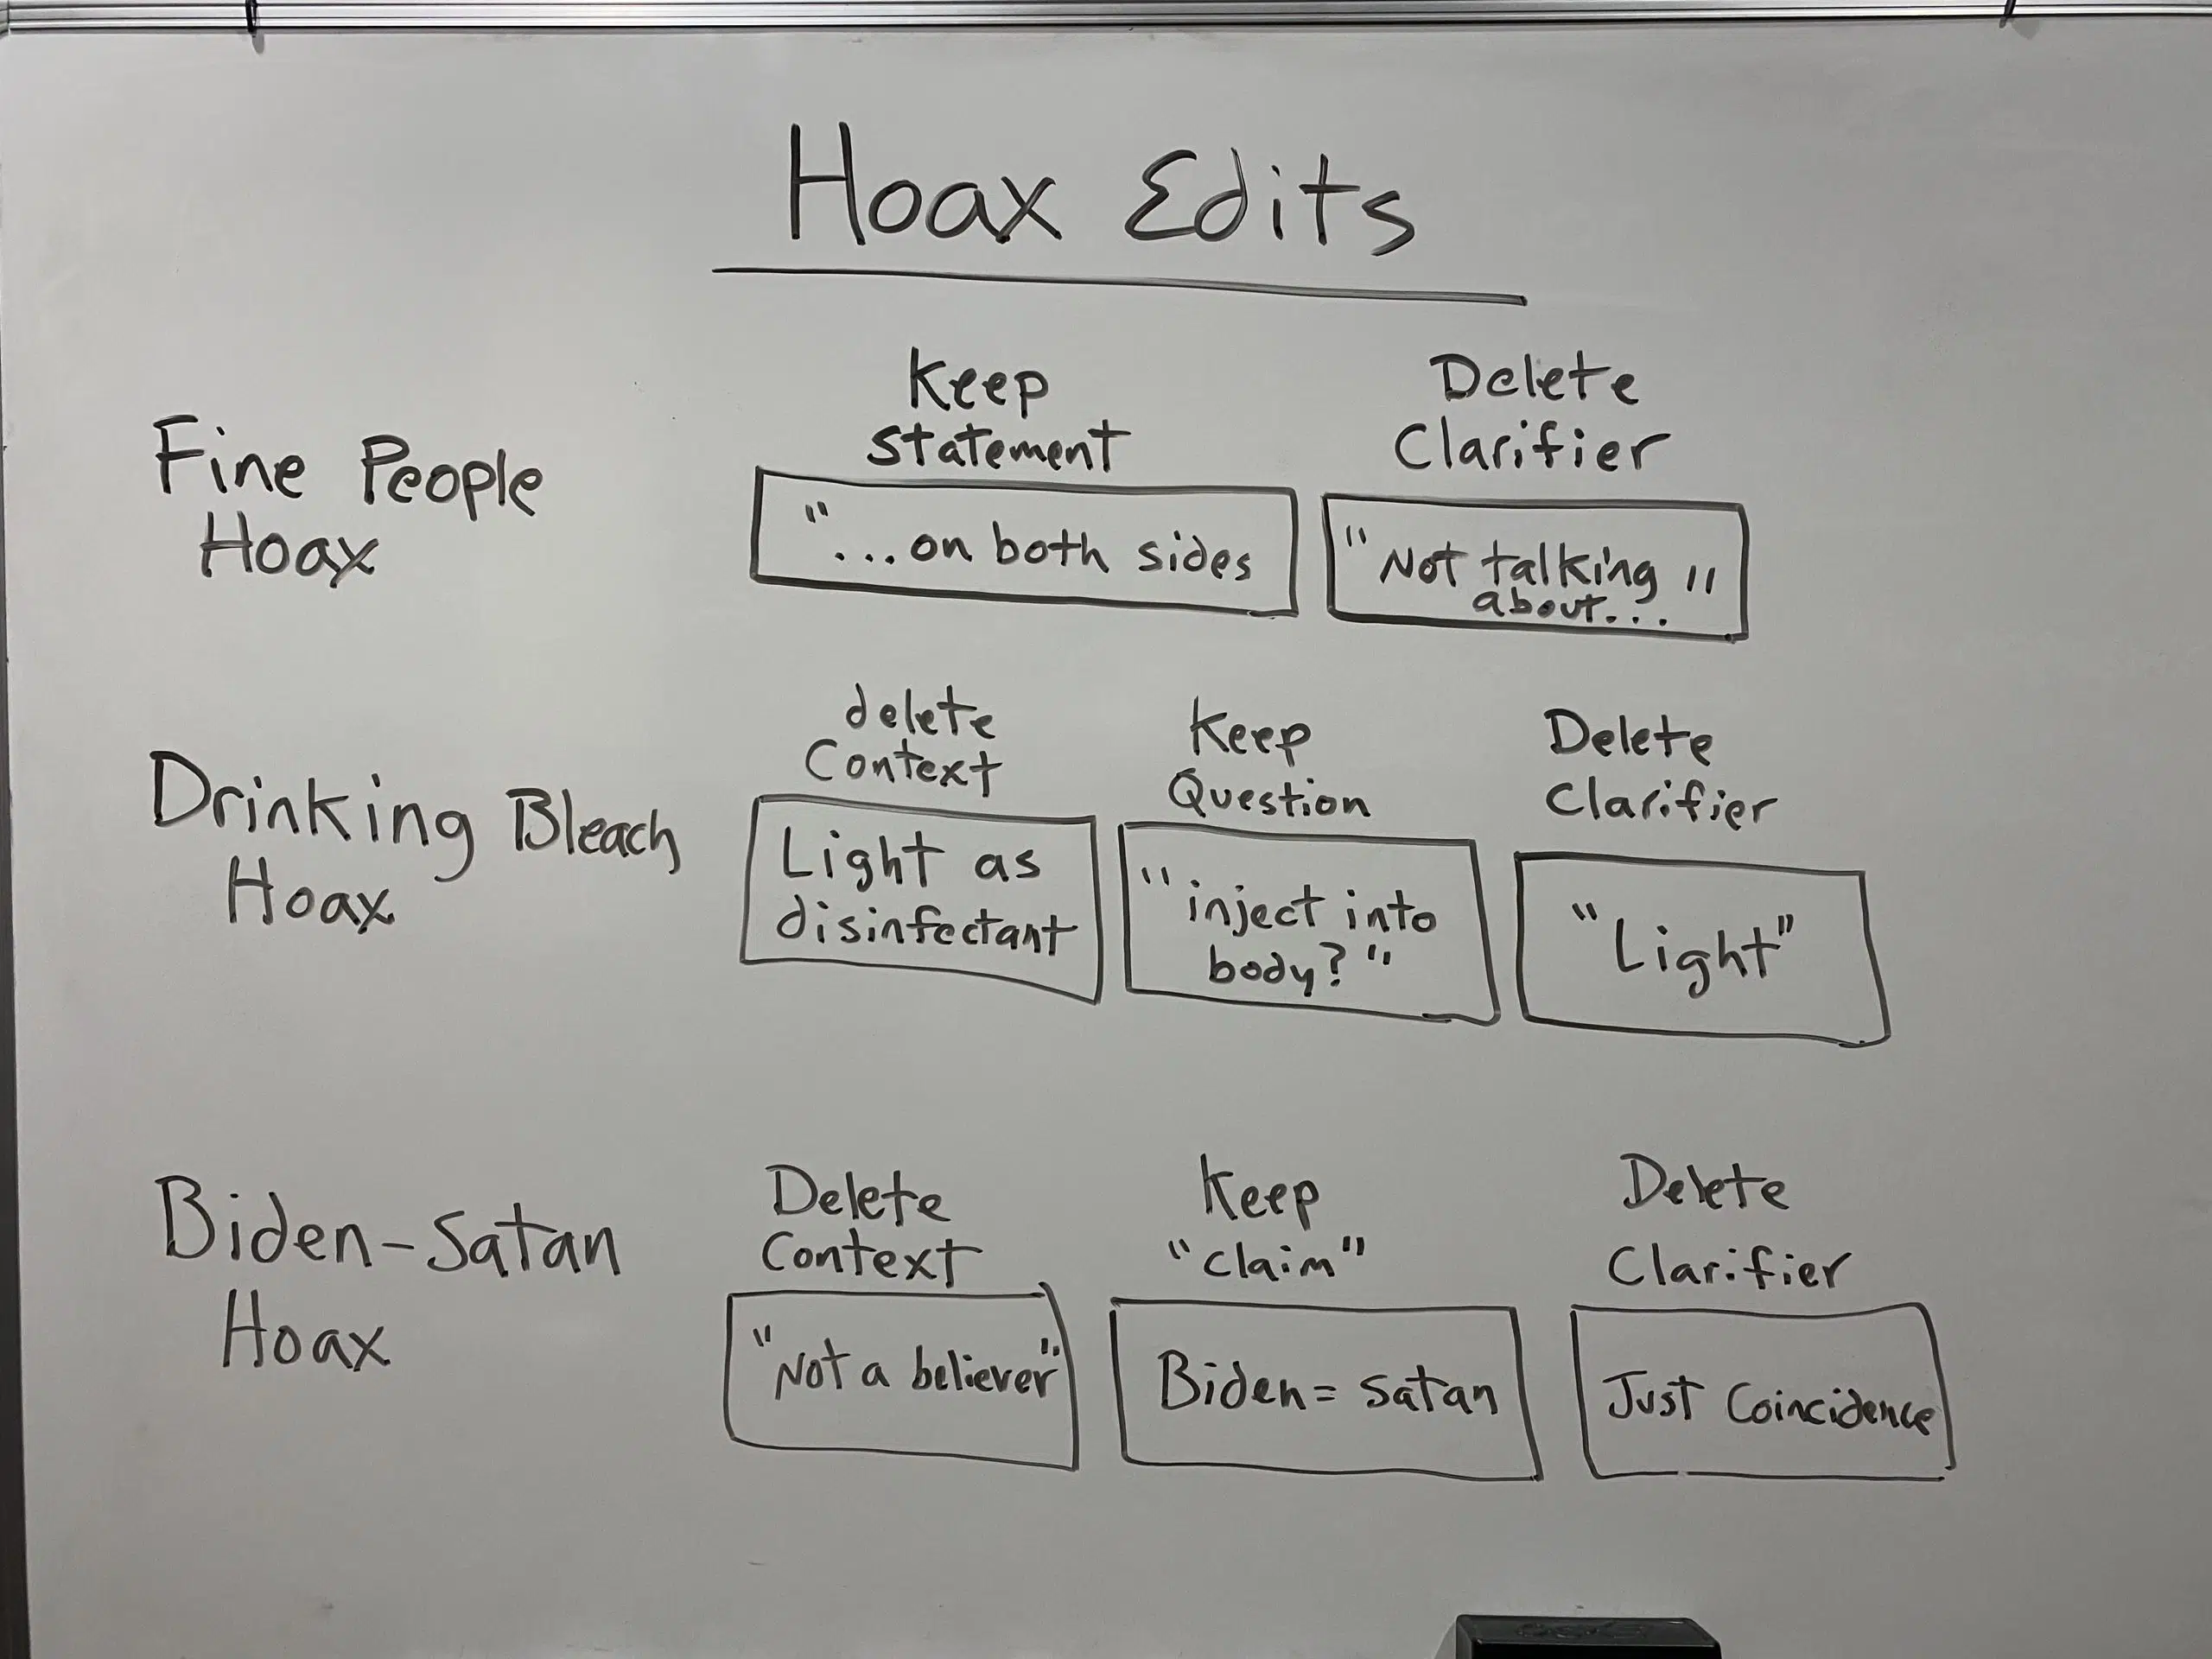 Hoax Edits
Fine People
Hoax
Keep
Statement
"...on both sides
Delete
Clarifier
"Not talking "
about...
Drinking Bleach
Hoax
delete
Context
Light as
disinfectant
Keep
Question
"inject into
body?"
Delete
Clarifier
"Light"
Biden-Satan
Hoax
Delete
Context
"Not a believer"
Keep
"Claim"
Biden = Satan
Delete
Clarifier
Just Coincidence